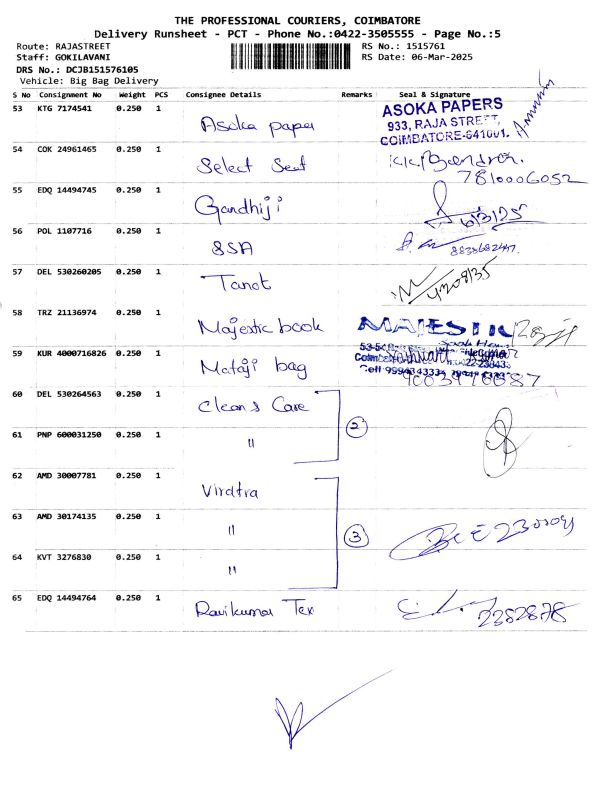 THE PROFESSIONAL COURIERS, COIMBATORE
Delivery Runsheet - PCT - Phone No.:0422-3505555 - Page No.:5
Route: RAJASTREET
Staff: GOKILAVANI
DRS No.: DCJB151576105
Vehicle: Big Bag Delivery
RS No.: 1515761
RS Date: 06-Mar-2025
S No Consignment No Weight PCS Consignee Details Remarks Seal & Signature
53 KTG 7174541 0.250 1 Asoka paper
ASOKA PAPERS
933, RAJA STREET,
COIMBATORE-641001.
54 COK 24961465 0.250 1 Select Seet
7810006052
55 EDQ 14494745 0.250 1 Gandhiji 6/3/25
56 POL 1107716 0.250 1 SSA
57 DEL 530260205 0.250 1 Tanot
58 TRZ 21136974 0.250 1 Majestic book MAJESTIK
59 KUR 4000716826 0.250 1 Mataji bag
60 DEL 530264563 0.250 1 Clean & Care
2
61 PNP 600031250 0.250 1 "
62 AMD 30007781 0.250 1 Virdtra
63 AMD 30174135 0.250 1 "
3
64 KVT 3276830 0.250 1 "
65 EDQ 14494764 0.250 1 Ravikumar Tex 2382878